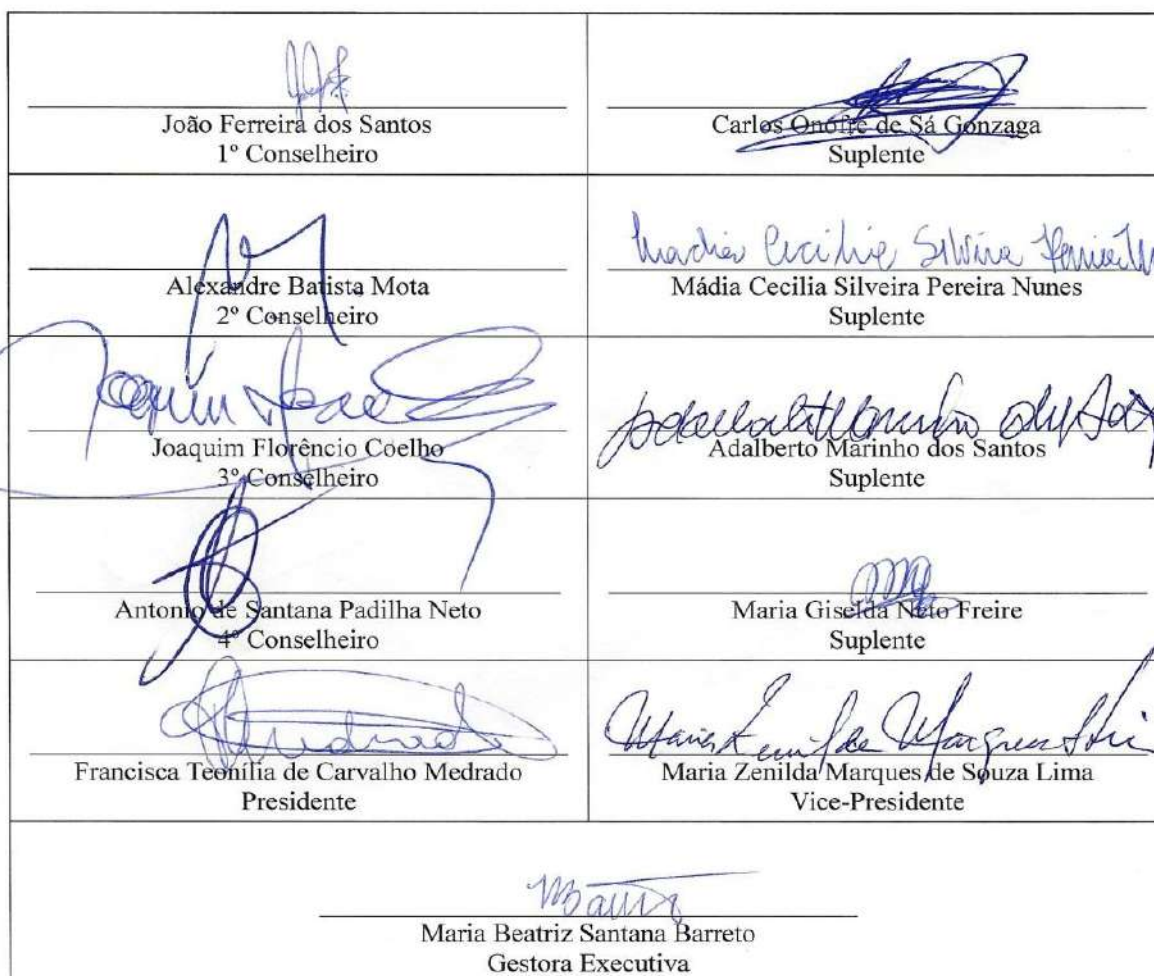 João Ferreira dos Santos
1º Conselheiro
Carlos Onofre de Sá Gonzaga
Suplente
Alexandre Batista Mota
2º Conselheiro
Madia Cecilia Silveira
Mádia Cecilia Silveira Pereira Nunes
Suplente
Joaquim
Joaquim Florêncio Coelho
3º Conselheiro
Adalberto Marinho dos
Adalberto Marinho dos Santos
Suplente
Antonio de Santana Padilha Neto
4º Conselheiro
Maria Giselda Neto Freire
Suplente
Francisca Teonília de Carvalho Medrado
Presidente
Maria Zenilda Marques
Maria Zenilda Marques de Souza Lima
Vice-Presidente
Maria Beatriz Santana Barreto
Gestora Executiva